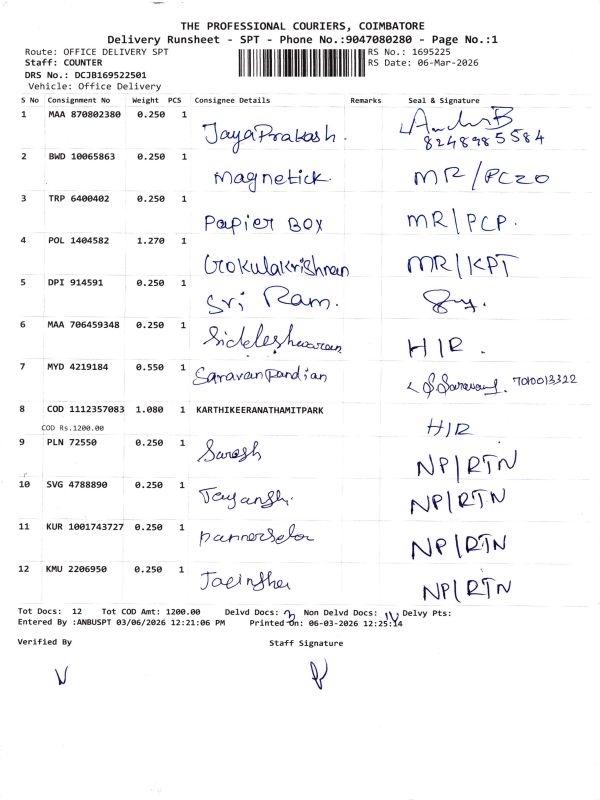 THE PROFESSIONAL COURIERS, COIMBATORE
Delivery Runsheet - SPT - Phone No.:9047080280 - Page No.:1
Route: OFFICE DELIVERY SPT RS No.: 1695225
Staff: COUNTER RS Date: 06-Mar-2026
DRS No.: DCJB169522501
Vehicle: Office Delivery
S No Consignment No Weight PCS Consignee Details Remarks Seal & Signature
1 MAA 870802380 0.250 1 JayaPrakash. 8248985584
2 BWD 10065863 0.250 1 Magnetick. MR/PCZO
3 TRP 6400402 0.250 1 Papier BOX MR/PCP.
4 POL 1404582 1.270 1 Gokulakrishnan MR/KPT
5 DPI 914591 0.250 1 Sri Ram.
6 MAA 706459348 0.250 1 H/R.
7 MYD 4219184 0.550 1 Saravanpandian 7010013322
8 COD 1112357083 1.080 1 KARTHIKEERANATHAMITPARK
COD Rs.1200.00 H/R
9 PLN 72550 0.250 1 NP/RTN
10 SVG 4788890 0.250 1 NP/RTN
11 KUR 1001743727 0.250 1 NP/RTN
12 KMU 2206950 0.250 1 NP/RTN
Tot Docs: 12 Tot COD Amt: 1200.00 Delvd Docs: Non Delvd Docs: Delvy Pts:
Entered By :ANBUSPT 03/06/2026 12:21:06 PM Printed On: 06-03-2026 12:25:14
Verified By Staff Signature